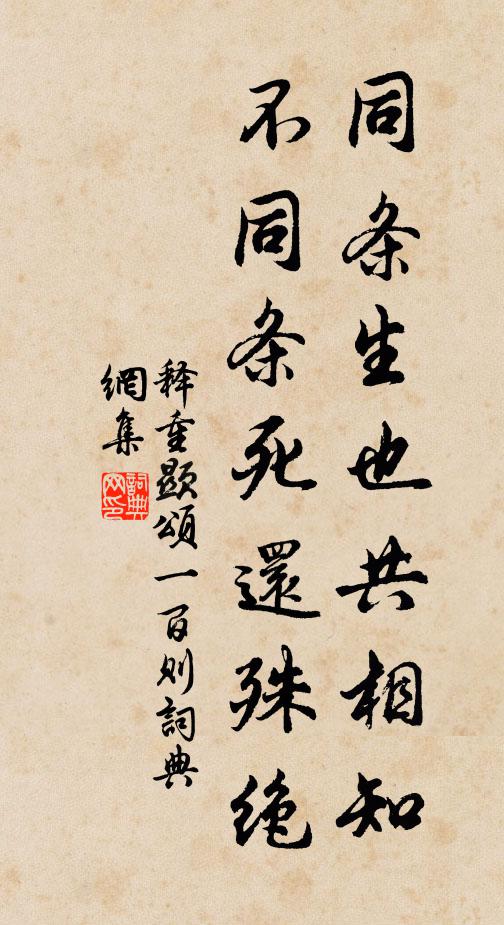 同条生也共相知
不同条死還殊绝
释重顯頌一百则詞典
網集
詞典网印